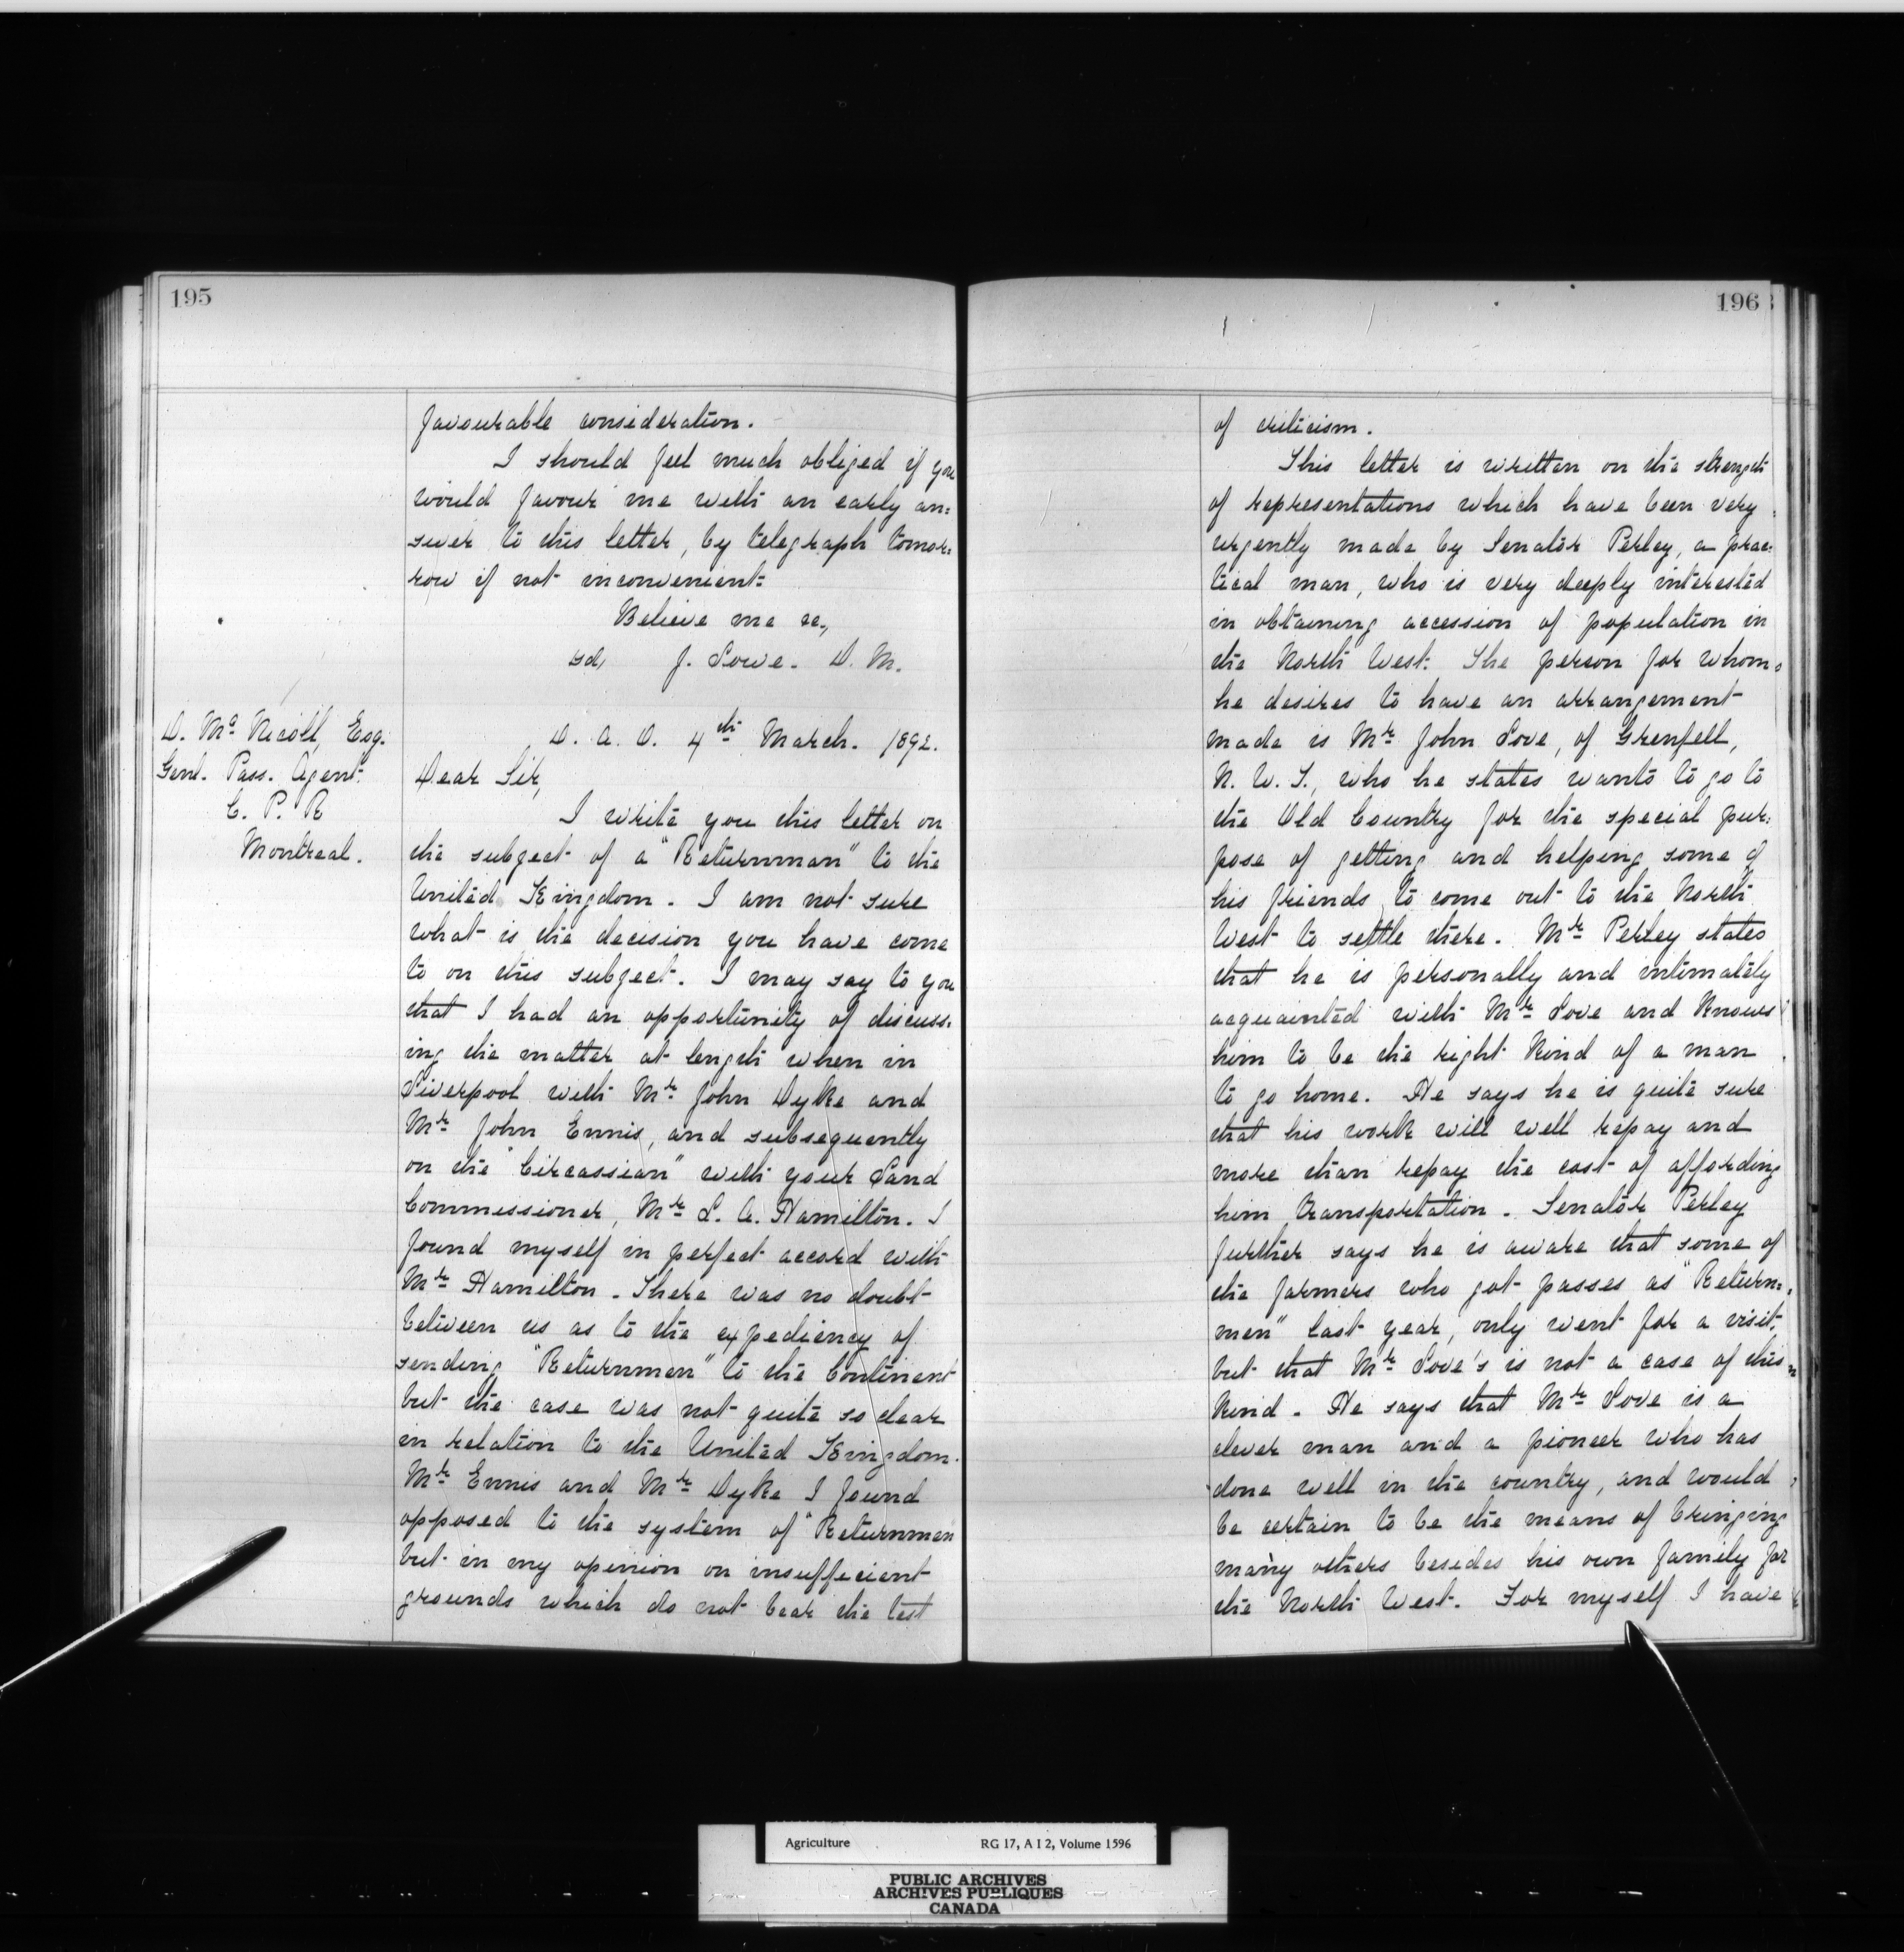 195
favourable consideration.
I should feel much obliged if you
would favour me with an early an=
swer to this letter, by telegraph tomor=
row if not inconvenient.
Believe me &c.,
sd, J. Lowe. D. M.
D. Mc Nicoll, Esq.
Genl. Pass. Agent.
C. P. R
Montreal.
D. A. O. 4th March. 1892.
Dear Sir,
I write you this letter on
the subject of a "Returnman" to the
United Kingdom. I am not sure
what is the decision you have come
to on this subject. I may say to you
that I had an opportunity of discuss=
ing the matter at length when in
Liverpool with Mr John Dyke and
Mr John Ennis, and subsequently
on the "Circassian" with your Land
Commissioner, Mr L. A. Hamilton. I
found myself in perfect accord with
Mr Hamilton. There was no doubt
between us as to the expediency of
sending "Returnmen" to the Continent
but the case was not quite so clear
in relation to the United Kingdom.
Mr Ennis and Mr Dyke I found
opposed to the system of "Returnmen
but in my opinion on insufficient
grounds which do not bear the test
196
of criticism.
This letter is written on the strength
of representations which have been very
urgently made by Senator Perley, a prac=
tical man, who is very deeply interested
in obtaining accession of population in
the North West. The person for whom
he desires to have an arrangement
made is Mr John Love, of Grenfell,
N. W. T., who he states wants to go to
the Old Country for the special pur=
pose of getting and helping some of
his friends to come out to the North
West to settle there. Mr Perley states
that he is personally and intimately
acquainted with Mr Love and knows
him to be the right kind of a man
to go home. He says he is quite sure
that his work will well repay and
more than repay the cost of affording
him transportation. Senator Perley
further says he is aware that some of
the farmers who got passes as "Return=
men" last year, only went for a visit.
but that Mr Love's is not a case of this
kind. He says that Mr Love is a
clever man and a pioneer who has
done well in the country, and would
be certain to be the means of bringing
many others besides his own family for
the North West. For myself I have
Agriculture RG 17, A I 2, Volume 1596
PUBLIC ARCHIVES
ARCHIVES PUBLIQUES
CANADA